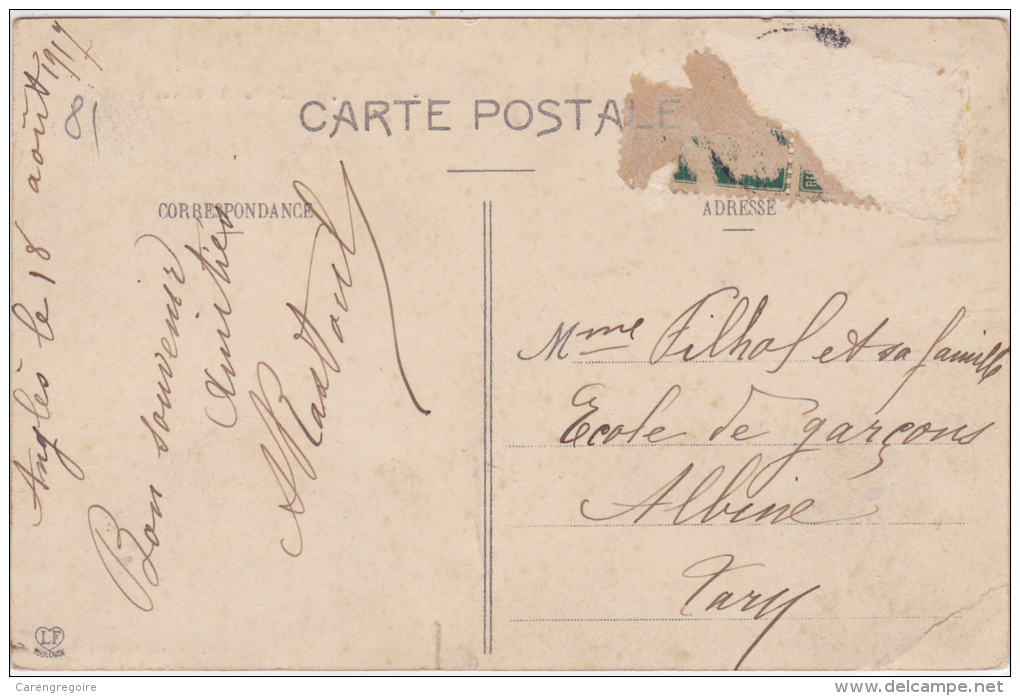 CARTE POSTALE
CORRESPONDANCE
ADRESSE
81
Anglès le 18 août 1917
Bon souvenir
Amitiés
Mme Filhol et sa famille
Ecole de garçons
Albine
Tarn
LF
TOULOUSE
Carengregoire
www.delcampe.net